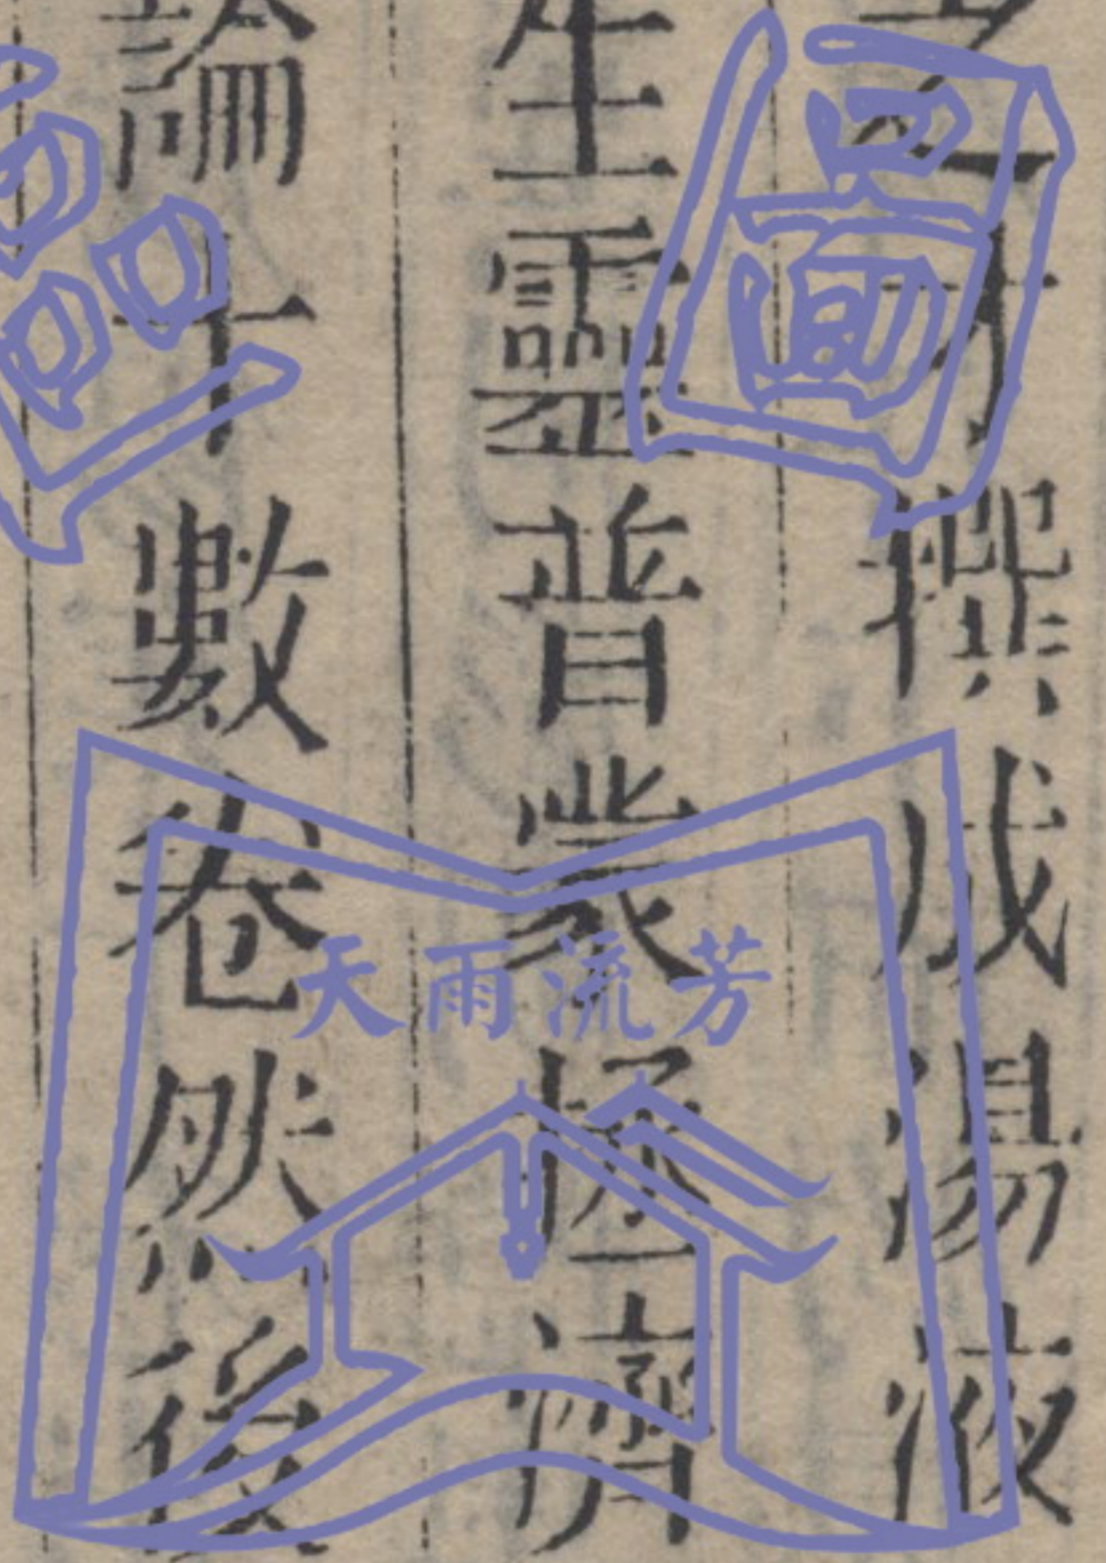 之才撰成湯液
生靈普蒙拯濟
論十數卷然後
圖
天雨流芳